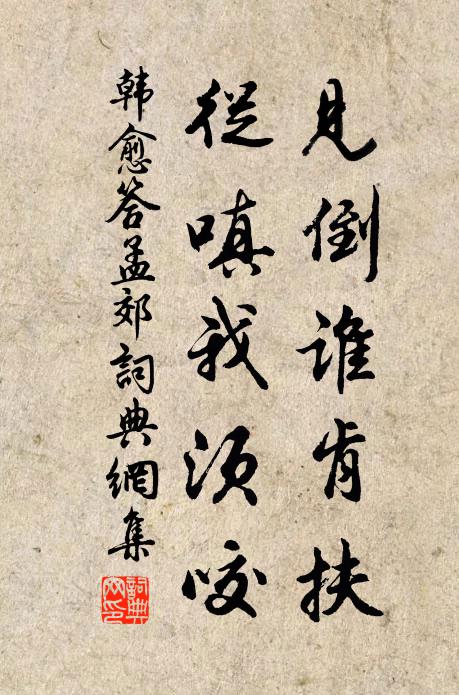 見倒誰肯扶
從嗔我須咬
韓愈答孟郊詞典網集
詞典
网印